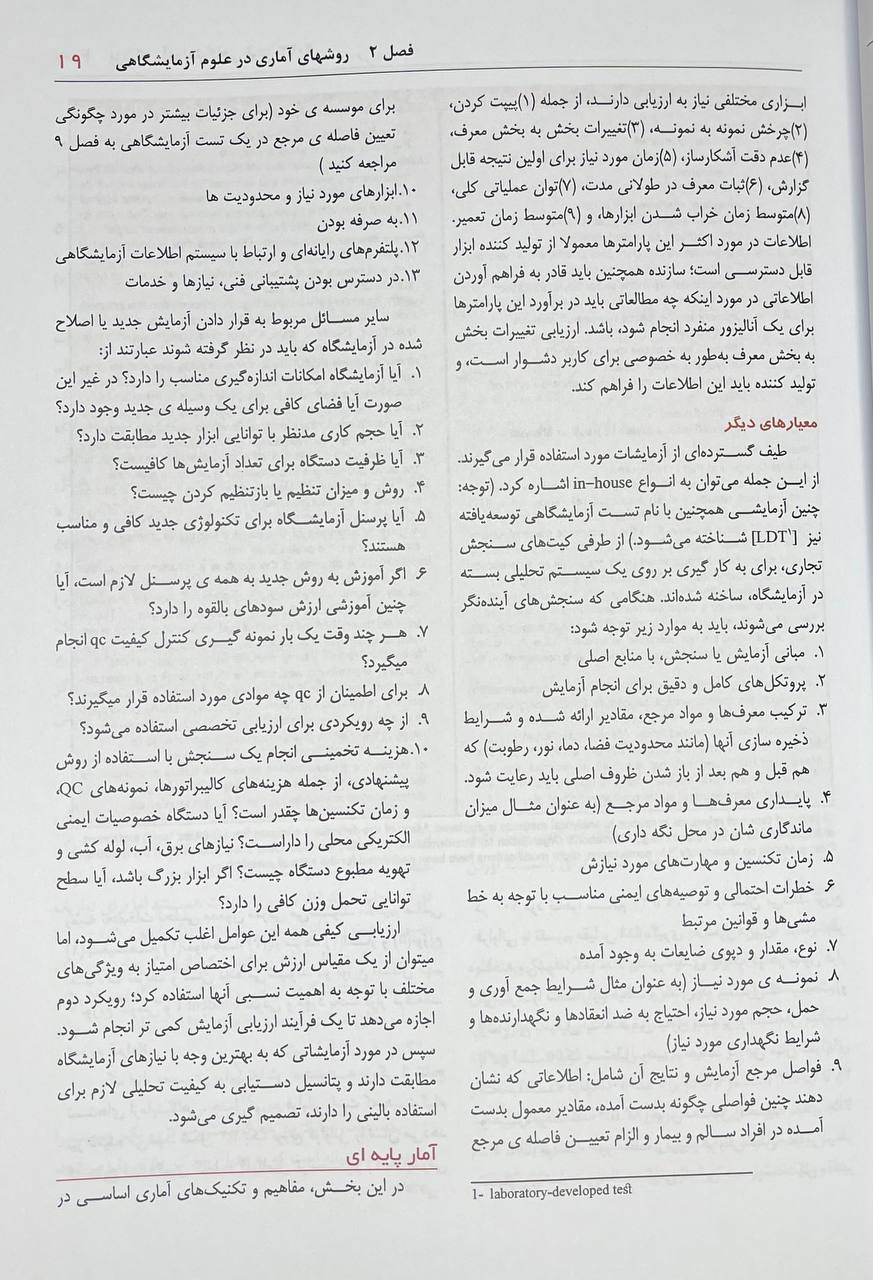 فصل ۲ روشهای آماری در علوم آزمایشگاهی ۱۹
ابزاری مختلفی نیاز به ارزیابی دارند، از جمله (۱)پیپت کردن،
(۲)چرخش نمونه به نمونه، (۳)تغییرات بخش به بخش معرف،
(۴)عدم دقت آشکارساز، (۵)زمان مورد نیاز برای اولین نتیجه قابل
گزارش، (۶)ثبات معرف در طولانی مدت، (۷)توان عملیاتی کلی،
(۸)متوسط زمان خراب شدن ابزارها، و (۹)متوسط زمان تعمیر.
اطلاعات در مورد اکثر این پارامترها معمولا از تولید کننده ابزار
قابل دسترسی است؛ سازنده همچنین باید قادر به فراهم آوردن
اطلاعاتی در مورد اینکه چه مطالعاتی باید در برآورد این پارامترها
برای یک آنالیزور منفرد انجام شود، باشد. ارزیابی تغییرات بخش
به بخش معرف به‌طور به خصوصی برای کاربر دشوار است، و
تولید کننده باید این اطلاعات را فراهم کند.
معیارهای دیگر
طیف گسترده‌ای از آزمایشات مورد استفاده قرار می‌گیرند.
از این جمله می‌توان به انواع in-house اشاره کرد. (توجه:
چنین آزمایشی همچنین با نام تست آزمایشگاهی توسعه‌یافته
نیز [LDT۱] شناخته می‌شود.) از طرفی کیت‌های سنجش
تجاری، برای به کار گیری بر روی یک سیستم تحلیلی بسته
در آزمایشگاه، ساخته شده‌اند. هنگامی که سنجش‌های آینده‌نگر
بررسی می‌شوند، باید به موارد زیر توجه شود:
۱. مبانی آزمایش یا سنجش، با منابع اصلی
۲. پروتکل‌های کامل و دقیق برای انجام آزمایش
۳. ترکیب معرف‌ها و مواد مرجع، مقادیر ارائه شده و شرایط
ذخیره سازی آنها (مانند محدودیت فضا، دما، نور، رطوبت) که
هم قبل و هم بعد از باز شدن ظروف اصلی باید رعایت شود.
۴. پایداری معرف‌ها و مواد مرجع (به عنوان مثال میزان
ماندگاری شان در محل نگه داری)
۵. زمان تکنسین و مهارت‌های مورد نیازش
۶. خطرات احتمالی و توصیه‌های ایمنی مناسب با توجه به خط
مشی‌ها و قوانین مرتبط
۷. نوع، مقدار و دپوی ضایعات به وجود آمده
۸. نمونه ی مورد نیاز (به عنوان مثال شرایط جمع آوری و
حمل، حجم مورد نیاز، احتیاج به ضد انعقادها و نگهدارنده‌ها و
شرایط نگهداری مورد نیاز)
۹. فواصل مرجع آزمایش و نتایج آن شامل: اطلاعاتی که نشان
دهند چنین فواصلی چگونه بدست آمده، مقادیر معمول بدست
آمده در افراد سالم و بیمار و الزام تعیین فاصله ی مرجع
1- laboratory-developed test
برای موسسه ی خود (برای جزئیات بیشتر در مورد چگونگی
تعیین فاصله ی مرجع در یک تست آزمایشگاهی به فصل ۹
مراجعه کنید )
۱۰.ابزارهای مورد نیاز و محدودیت ها
۱۱.به صرفه بودن
۱۲.پلتفرم‌های رایانه‌ای و ارتباط با سیستم اطلاعات آزمایشگاهی
۱۳.در دسترس بودن پشتیبانی فنی، نیازها و خدمات
سایر مسائل مربوط به قرار دادن آزمایش جدید یا اصلاح
شده در آزمایشگاه که باید در نظر گرفته شوند عبارتند از:
۱. آیا آزمایشگاه امکانات اندازه‌گیری مناسب را دارد؟ در غیر این
صورت آیا فضای کافی برای یک وسیله ی جدید وجود دارد؟
۲. آیا حجم کاری مدنظر با توانایی ابزار جدید مطابقت دارد؟
۳. آیا ظرفیت دستگاه برای تعداد آزمایش‌ها کافیست؟
۴. روش و میزان تنظیم یا بازتنظیم کردن چیست؟
۵. آیا پرسنل آزمایشگاه برای تکنولوژی جدید کافی و مناسب
هستند؟
۶. اگر آموزش به روش جدید به همه ی پرسنل لازم است، آیا
چنین آموزشی ارزش سودهای بالقوه را دارد؟
۷. هر چند وقت یک بار نمونه گیری کنترل کیفیت qc انجام
میگیرد؟
۸. برای اطمینان از qc چه موادی مورد استفاده قرار میگیرند؟
۹. از چه رویکردی برای ارزیابی تخصصی استفاده می‌شود؟
۱۰.هزینه تخمینی انجام یک سنجش با استفاده از روش
پیشنهادی، از جمله هزینه‌های کالیبراتورها، نمونه‌های QC،
و زمان تکنسین‌ها چقدر است؟ آیا دستگاه خصوصیات ایمنی
الکتریکی محلی را داراست؟ نیازهای برق، آب، لوله کشی و
تهویه مطبوع دستگاه چیست؟ اگر ابزار بزرگ باشد، آیا سطح
توانایی تحمل وزن کافی را دارد؟
ارزیابی کیفی همه این عوامل اغلب تکمیل می‌شود، اما
میتوان از یک مقیاس ارزش برای اختصاص امتیاز به ویژگی‌های
مختلف با توجه به اهمیت نسبی آنها استفاده کرد؛ رویکرد دوم
اجازه می‌دهد تا یک فرآیند ارزیابی آزمایش کمی تر انجام شود.
سپس در مورد آزمایشاتی که به بهترین وجه با نیازهای آزمایشگاه
مطابقت دارند و پتانسیل دستیابی به کیفیت تحلیلی لازم برای
استفاده بالینی را دارند، تصمیم گیری می‌شود.
آمار پایه ای
در این بخش، مفاهیم و تکنیک‌های آماری اساسی در